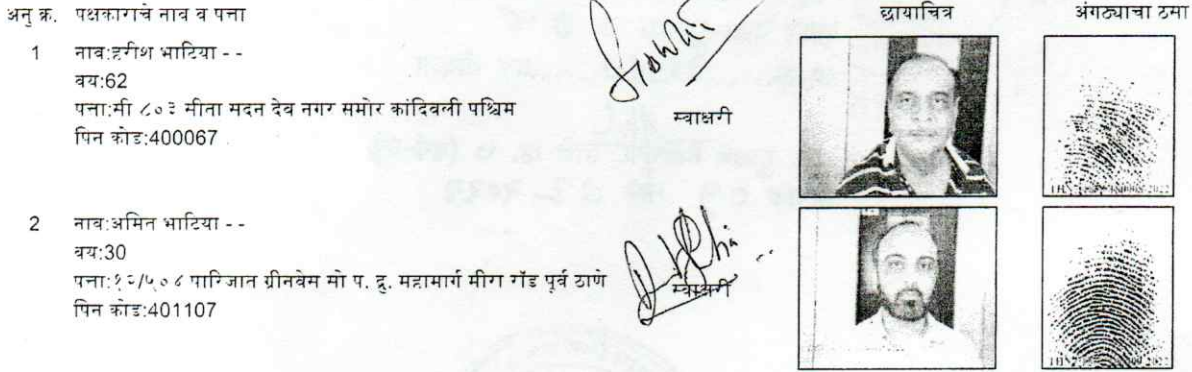 अनु क्र. पक्षकाराचे नाव व पत्ता छायाचित्र अंगठ्याचा ठसा
1 नाव:हरीश भाटिया - -
वय:62
पत्ता:सी ८०३ सीता मदन देव नगर समोर कांदिवली पश्चिम
पिन कोड:400067
स्वाक्षरी
2 नाव:अमित भाटिया - -
वय:30
पत्ता:१२/५०४ पारिजात ग्रीनवेस सो प. दृ. महामार्ग मीरा रॉड पूर्व ठाणे
पिन कोड:401107
स्वाक्षरी